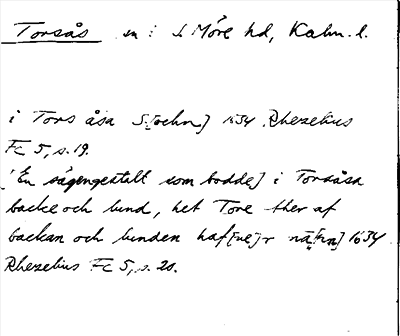 Torsås sn i S. Möre hd, Kalm. l.
i Tors åsa S[ochn] 1634 Rhezelius
Fc 5, s. 19.
[En sägengestalt som bodde] i Torsåsa
backe och lund, het Tore ther af
backan och lunden haf[ue]r nä[fn] 1634
Rhezelius Fc 5, s. 20.